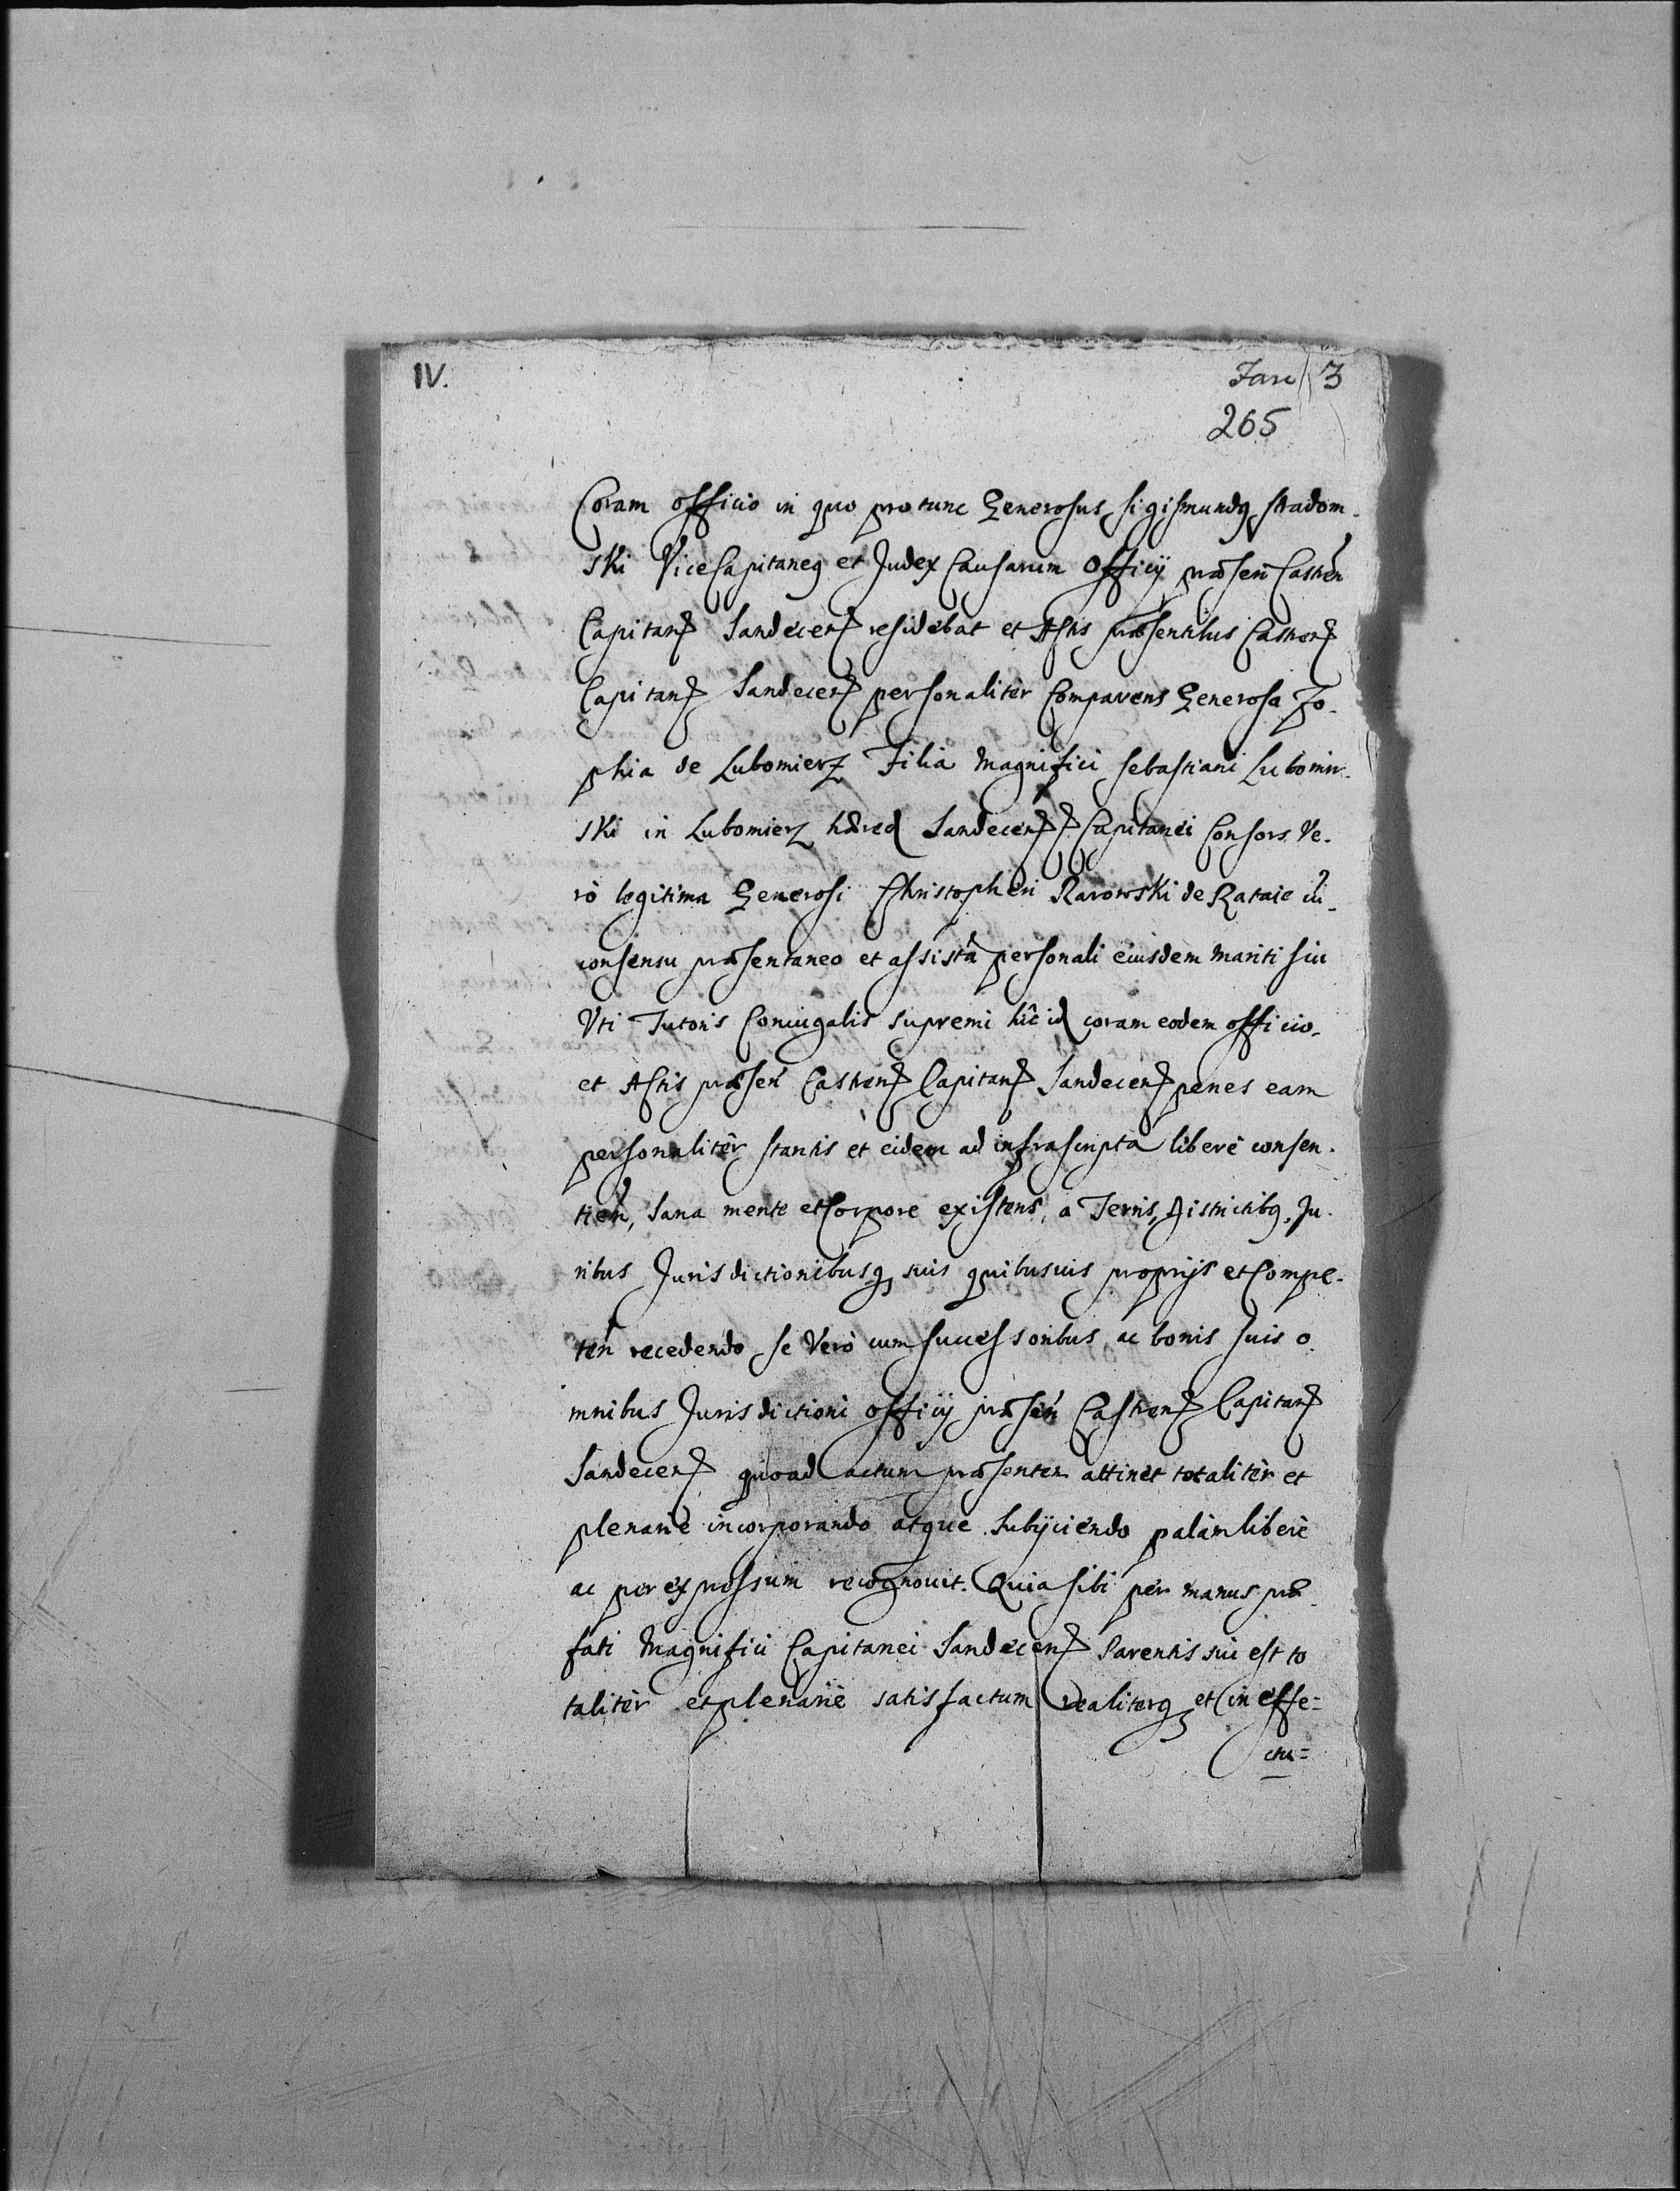 IV.
3
265
Coram Officio in quo protunc Generosus Sigismundq Stadom-
ski ViceCapitaneq et Judex Causarum Officij præsen Castren
Capitan Sandecen residebat et Actis præsentibus Castren
Capitan Sandecen personalitèr Comparens Generosa Zo-
phia de Lubomierz Filia Magnifici Sebastiani Lubomir-
ski in Lubomierz hæred Sandecen Capitanei Consors Ve-
rò legitima Generosi Christopheri Rarowski de Rataie cū
consensu præsentaneo et assista personali eiusdem mariti sui
Vti Tutoris Coniugalis supremi hîc id coram eodem officio
et Actis præsen Castren Capitan Sandecen penes eam
personalitèr stantis et eidem ad infrascripta liberè consen-
tien, Sana mente et Corpore existens, a Terris, Districtibq, Ju-
ribus Jurisdictionibusq suis quibusuis proprijs et Compe-
ten recedendo se Verò cum successoribus ac bonis suis o-
mnibus Jurisdictioni officij præsen Castren Capitan
Sandecen quoad actum præsentem attinet totalitèr et
plenariè incorporando atque Subijciendo palàm liberè
ac per expressum recognouit. Quia sibi per manus præ-
fati Magnifici Capitanei Sandecen Parentis sui est to
talitèr et plenariè satisfactum realiterq et in effe=
ctu=